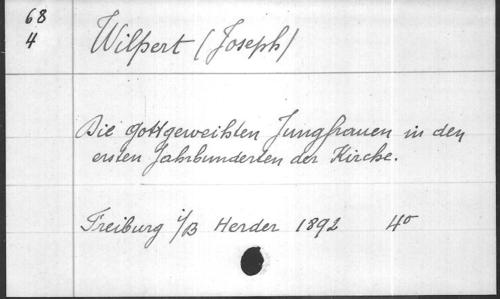 68
4
Wilpert (Joseph)
Die gottgeweihten Jungfrauen in den
ersten Jahrhunderten der Kirche.
Freiburg i/B Herder 1892 4o